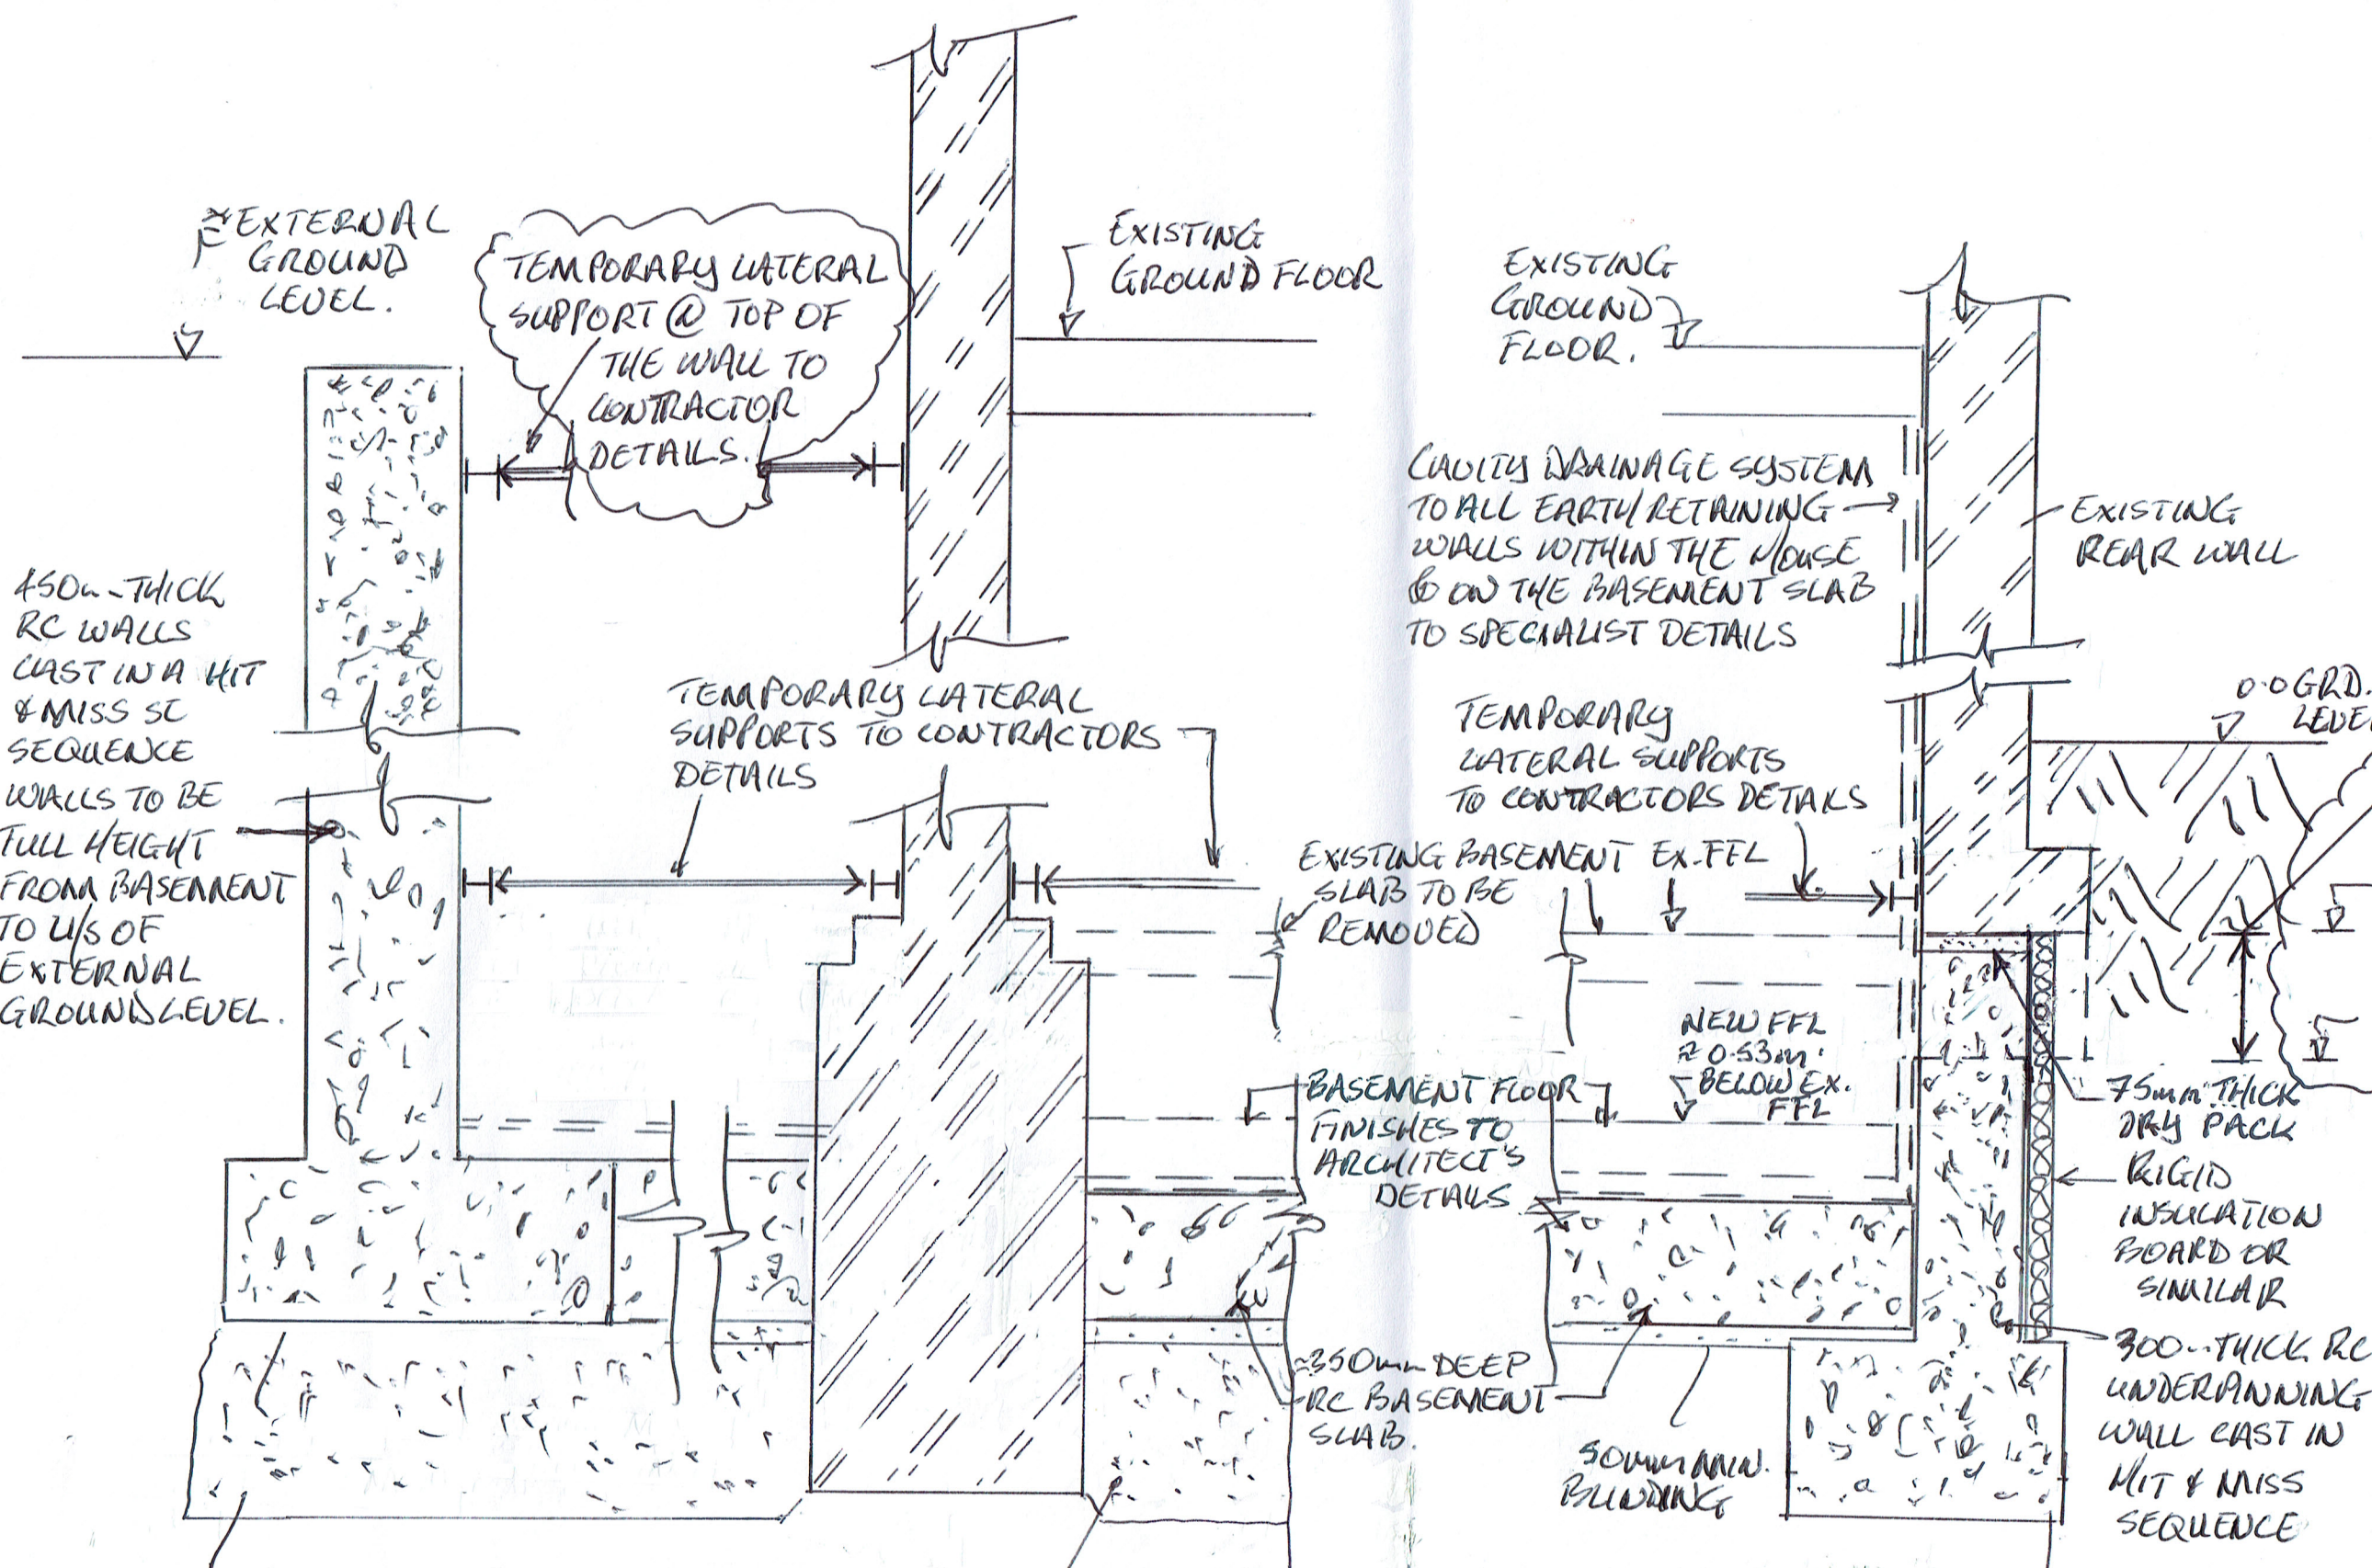 ≈ EXTERNAL
GROUND
LEVEL.
TEMPORARY LATERAL
SUPPORT @ TOP OF
THE WALL TO
CONTRACTOR
DETAILS.
EXISTING
GROUND FLOOR
EXISTING
GROUND
FLOOR.
CAVITY DRAINAGE SYSTEM
TO ALL EARTH/RETAINING
WALLS WITHIN THE HOUSE
& ON THE BASEMENT SLAB
TO SPECIALIST DETAILS
EXISTING
REAR WALL
450mm THICK
RC WALLS
CAST IN A HIT
& MISS SC
SEQUENCE
WALLS TO BE
FULL HEIGHT
FROM BASEMENT
TO U/S OF
EXTERNAL
GROUND LEVEL.
TEMPORARY LATERAL
SUPPORTS TO CONTRACTORS
DETAILS
TEMPORARY
LATERAL SUPPORTS
TO CONTRACTORS DETAILS
0.0 GRD.
LEVEL
EXISTING BASEMENT
SLAB TO BE
REMOVED
EX. FFL
NEW FFL
≈ 0.53m
BELOW EX.
FFL
BASEMENT FLOOR
FINISHES TO
ARCHITECT'S
DETAILS
75mm THICK
DRY PACK
RIGID
INSULATION
BOARD OR
SIMILAIR
≈350mm DEEP
RC BASEMENT
SLAB.
50mm MIN.
BLINDING
300mm THICK RC
UNDERPINNING
WALL CAST IN
HIT & MISS
SEQUENCE